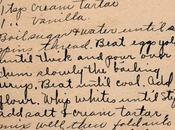 1 tsp cream tartar
1 " vanilla
Boil sugar & water until it
spins thread. Beat egg yol
until thick and pour over
them slowly the boiling
syrup. Beat until cool. Add
flour. Whip whites until st
add salt & cream tartar
mix well then fold into